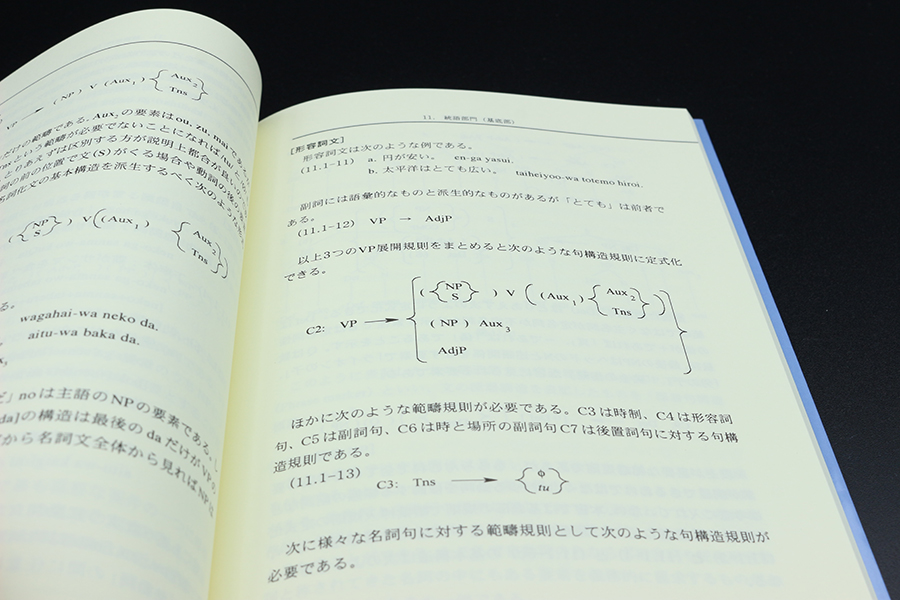 VP → (NP) V (Aux1) { Aux2
Tns }
だけの範疇である。Aux2の要素はou, zu, mai であ
という範疇が必要でないことになれば/ta/
、とりあえずは区別する方が説明上都合が良い
詞の前の位置で文(S)がくる場合や動詞の後の
名詞化文の基本構造を派生するべく次のような
( { NP
S } ) V ( (Aux1) { Aux2
Tns } )
る。
wagahai-wa neko da.
aitu-wa baka da.
」noは主語のNPの要素である。し
da]の構造は最後のdaだけがVPの
から名詞文全体から見ればNP
11. 統語部門(基底部)
[形容詞文]
形容詞文は次のような例である。
(11.1-11) a. 円が安い。 en-ga yasui.
b. 太平洋はとても広い。 taiheiyoo-wa totemo hiroi.
副詞には語彙的なものと派生的なものがあるが「とても」は前者で
ある。
(11.1-12) VP → AdjP
以上3つのVP展開規則をまとめると次のような句構造規則に定式化
できる。
C2: VP → { ( { NP
S } ) V ( (Aux1) { Aux2
Tns } )
(NP) Aux3
AdjP }
ほかに次のような範疇規則が必要である。C3は時制、C4は形容詞
句、C5は副詞句、C6は時と場所の副詞句C7は後置詞句に対する句構
造規則である。
(11.1-13)
C3: Tns → { φ
tu }
次に様々な名詞句に対する範疇規則として次のような句構造規則が
必要である。